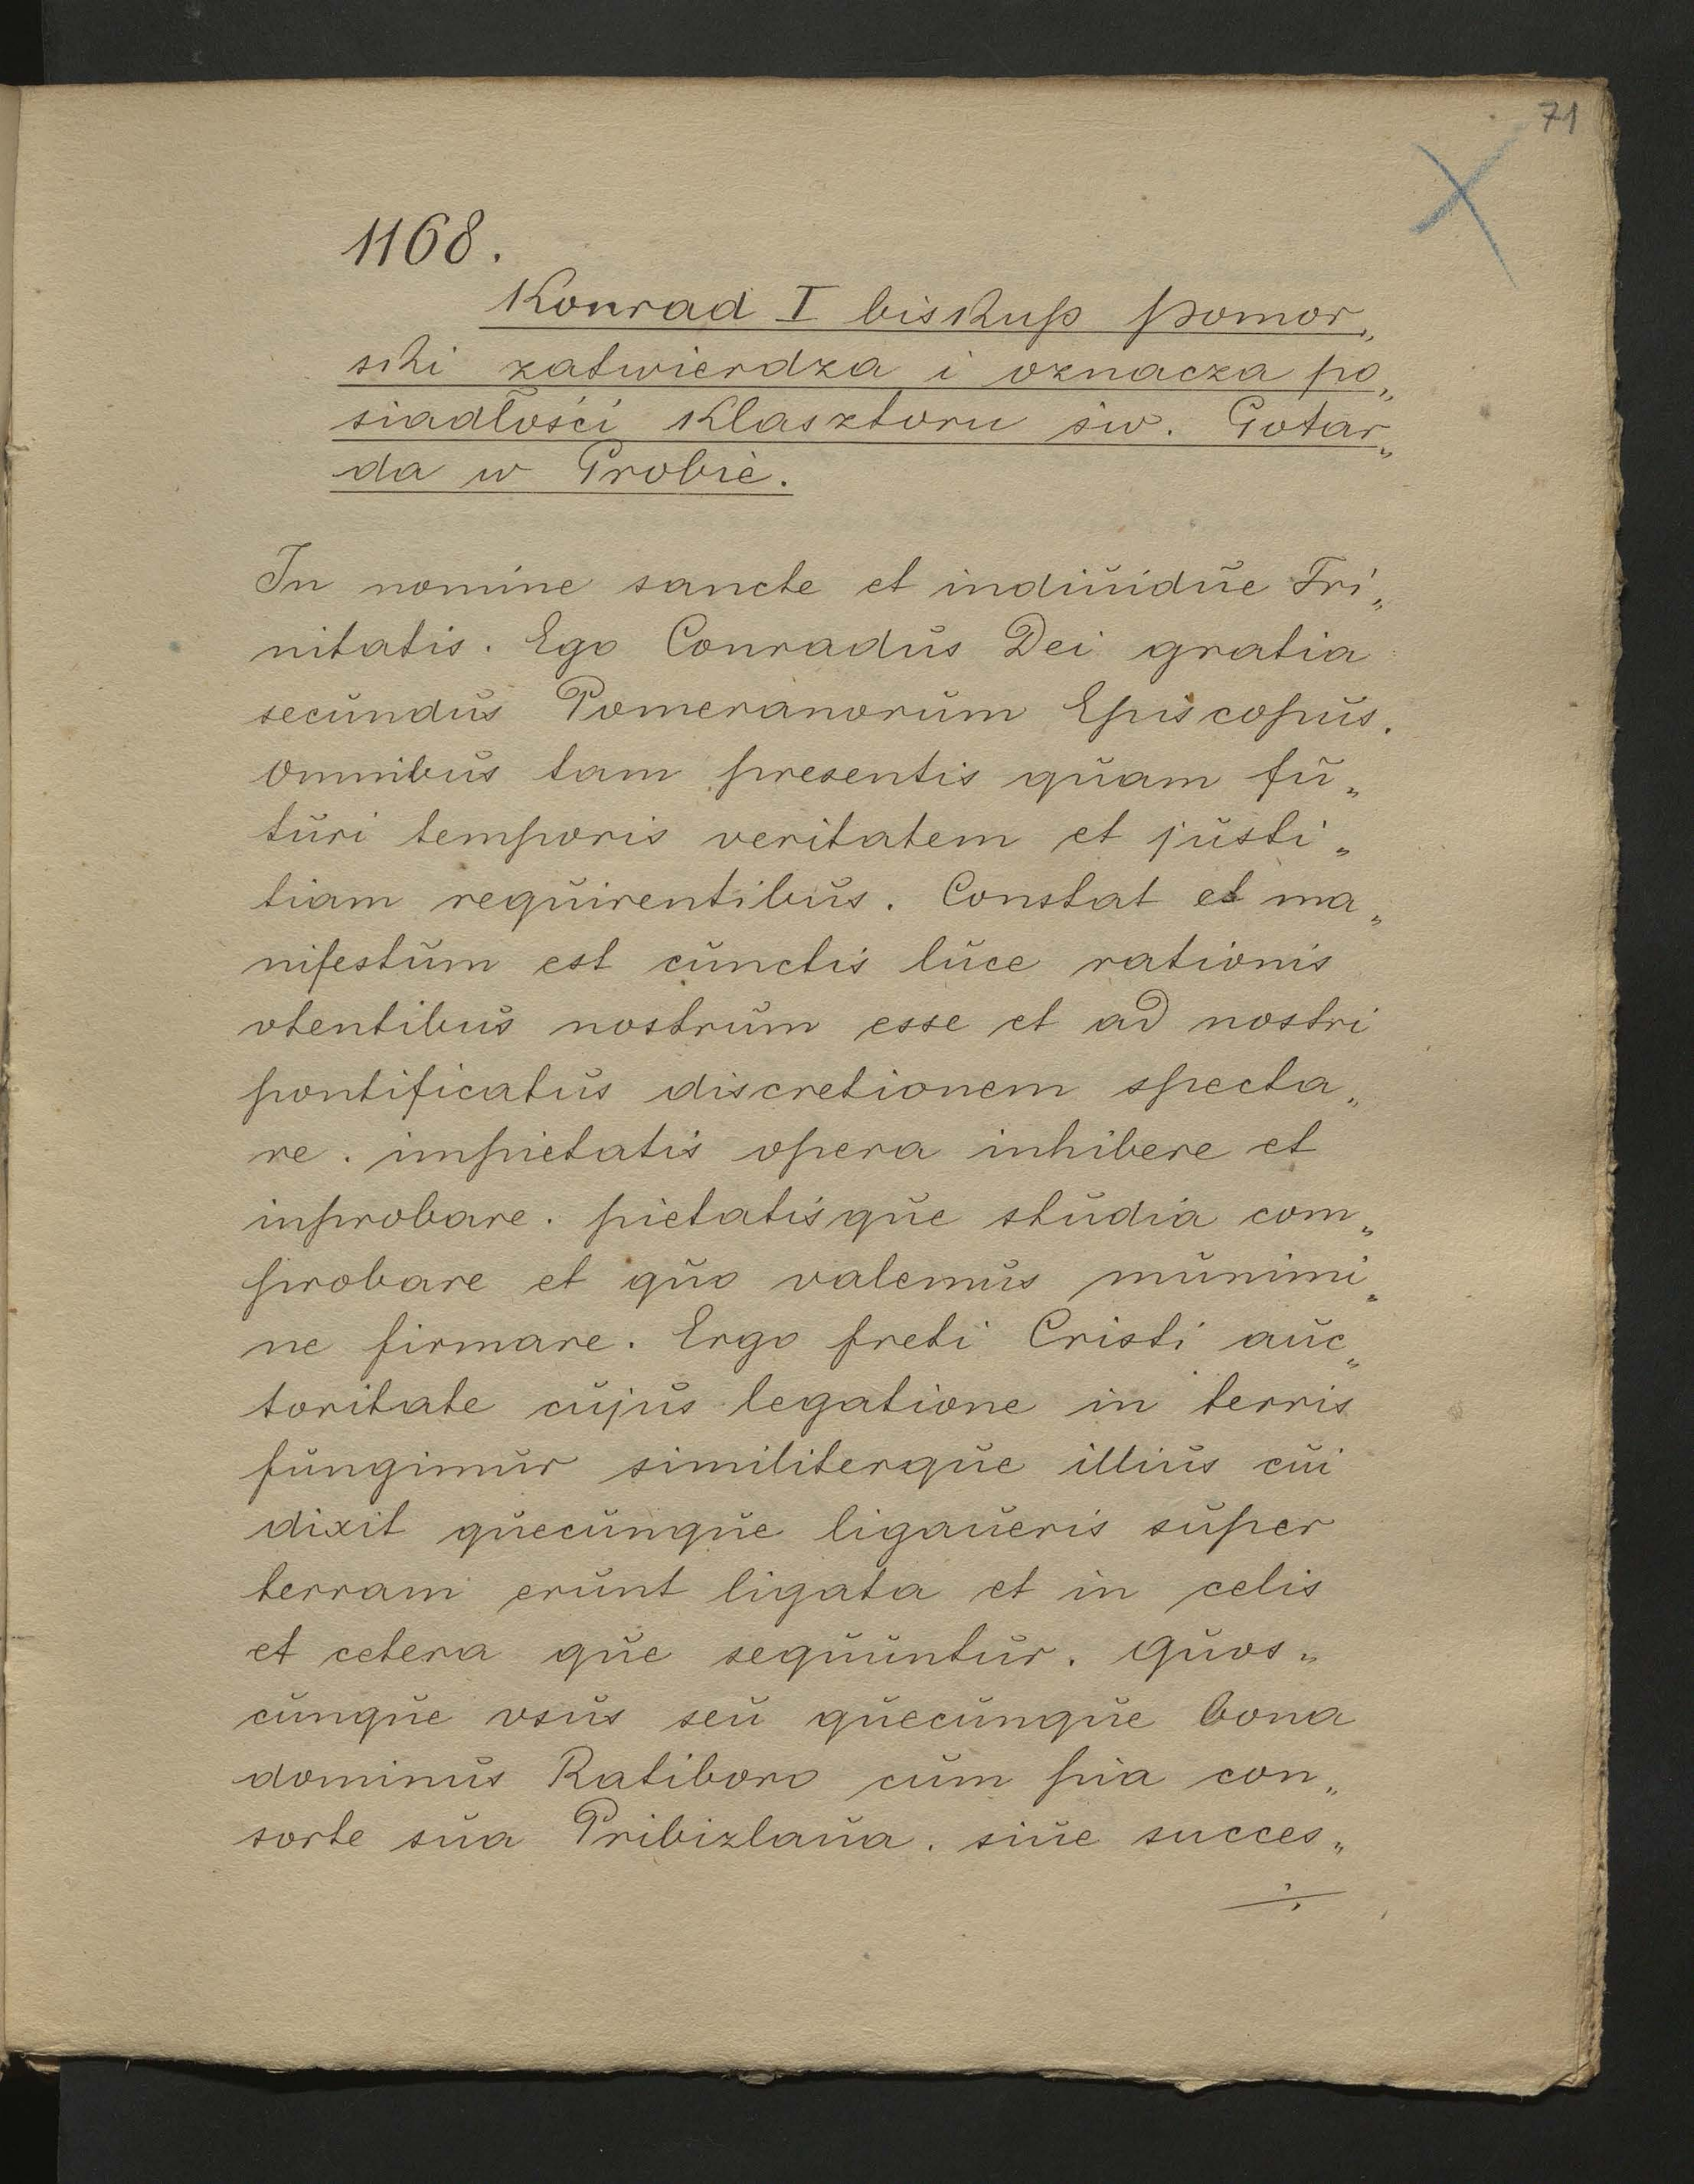 71
1168.
Konrad I biskup pomor„
ski zatwierdza i oznacza po„
siadłości klasztoru św. Gotar„
da w Grobie.
In nomine sancte et indiuidue Tri„
nitatis. Ego Conradus Dei gratia
secundus Pomeranorum Episcopus.
omnibus tam presentis quam fu„
turi temporis veritatem et justi„
tiam requirentibus. Constat et ma„
nifestum est cunctis luce rationis
vtentibus nostrum esse et ad nostri
pontificatus discretionem specta„
re. impietatis opera inhibere et
inprobare. pietatisque studia com„
probare et quo valemus munimi„
ne firmare. Ergo freti Cristi auc„
toritate cujus legatione in terris
fungimur similiterque illius cui
dixit quecunque ligaueris super
terram erunt ligata et in celis
et cetera que sequuntur. quos„
cunque vsus seu quecunque bona
dominus Ratiboro cum pia con„
sorte sua Pribizlaua. siue succes„
÷